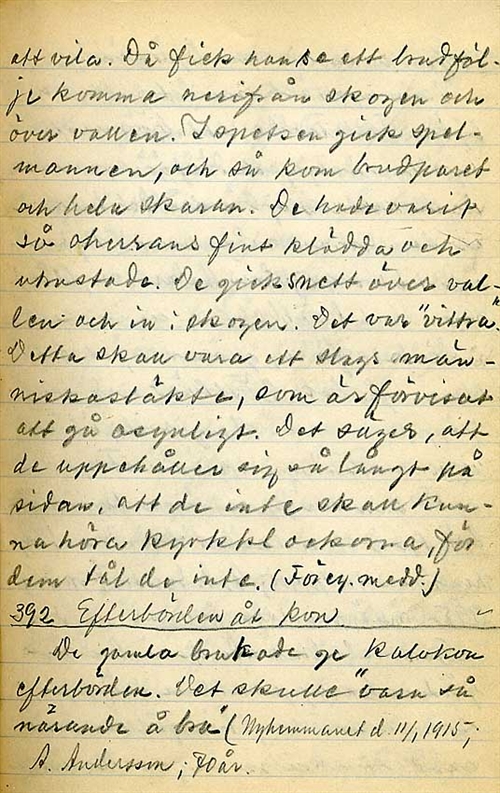 att vila. Då fick han se ett brudföl-
je komma nerifrån skogen och
över vallen. I spetsen gick spel-
mannen, och så kom brudparet
och hela skaran. De hade varit
så oherrans fint klädda och
utrustade. De gick snett över val-
len och in i skogen. Det var "vittra".
Detta skall vara ett slags män-
niskosläkte, som är förvisat
att gå osynligt. Det säges, att
de uppehåller sig så långt på
sidan, att de inte skall kun-
na höra kyrkklockorna, för
dem tål de inte. (Föreg. medd.)
392 Efterbörden åt kon
De gamla brukade ge kalvkon
efterbörden. Det skulle "vara så
närande å bra" (Nyhemmanet d. 11/1 1915;
A. Andersson; 70 år.